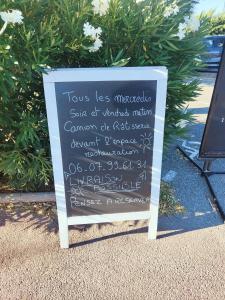 Tous les mercredis
Soir et vendredi matin
Camion de Rôtisserie
devant l'espace
restauration
06.07.99.61.81
LIVRAISON
POSSIBLE
PENSEZ A RESERVER